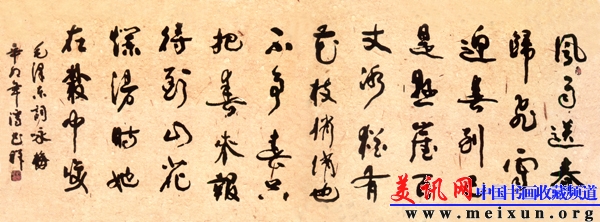 風雨送春
歸飛雪
迎春到已
是懸崖百
丈冰猶有
花枝俏俏也
不爭春只
把春来報
待到山花
爛漫時她
在叢中笑
毛澤东詞咏梅
辛卯年
美讯网 中国书画收藏频道
www.meixun.org